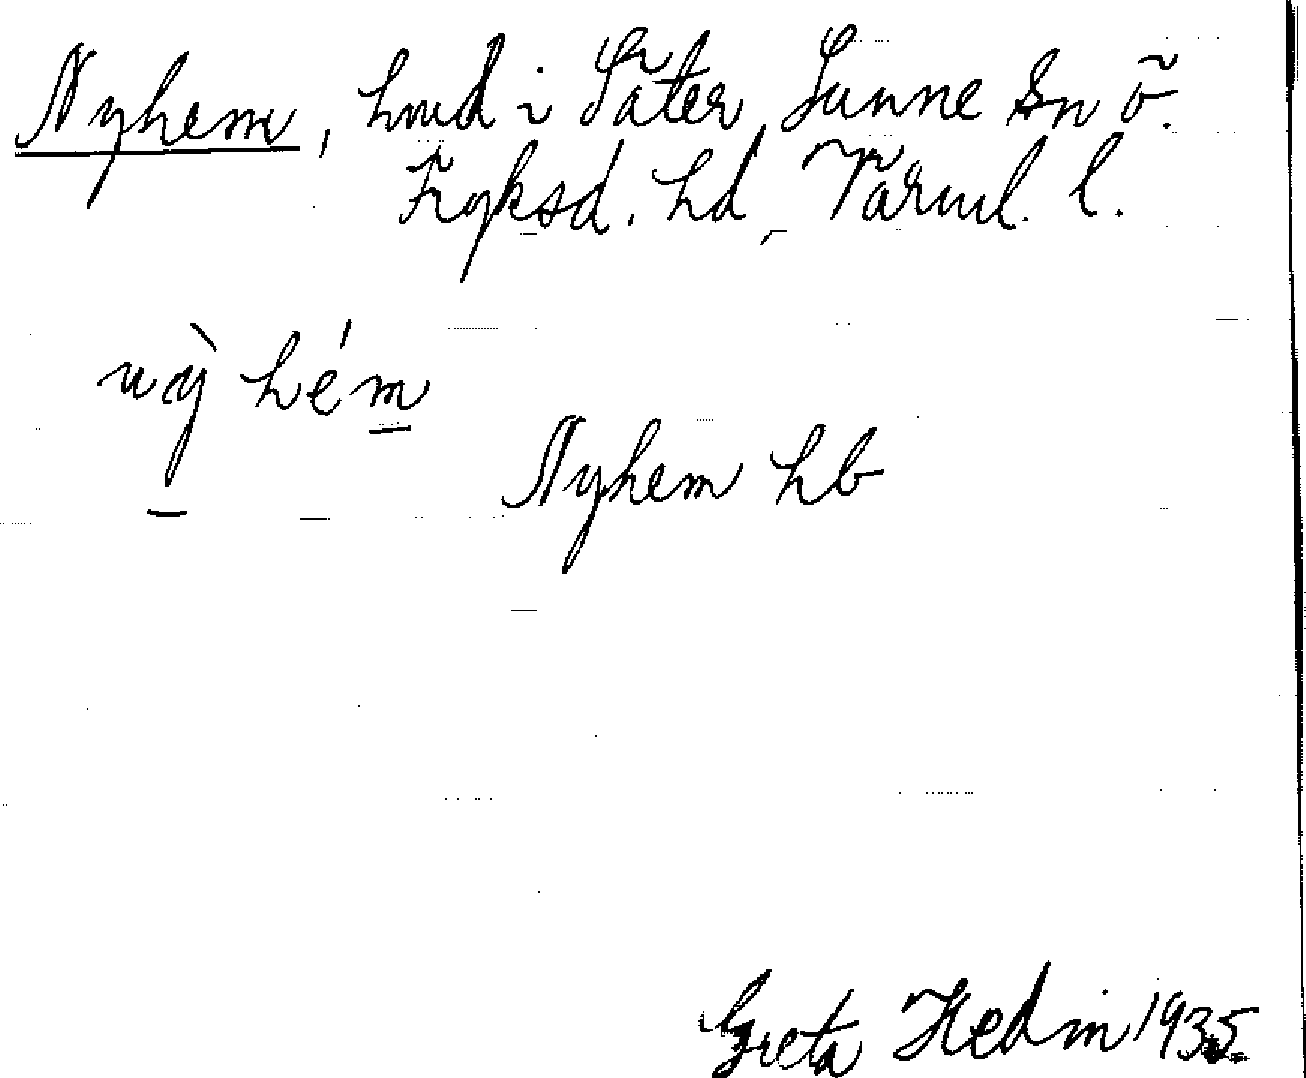 Nyhem, hmd i Säter, Sunne Sn ö.
Fryksd. hd, Värml. l.
nỳ hém
Nyhem hb
Greta Hedin 1935.